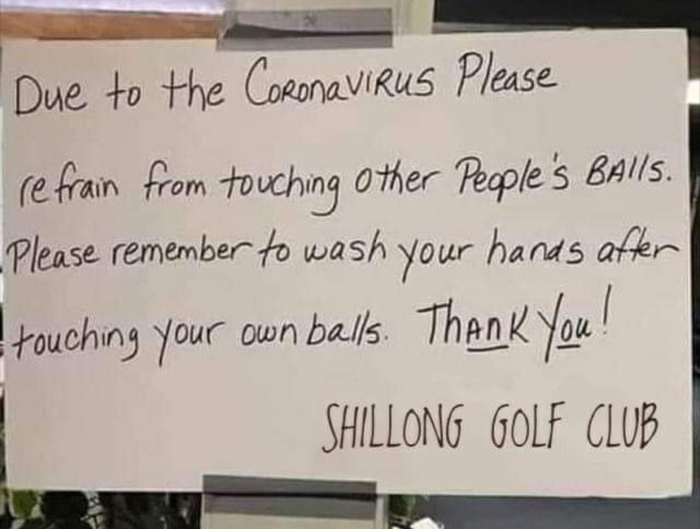 Due to the CORONAVIRUS Please
refrain from touching other People's BAlls.
Please remember to wash your hands after
touching your own balls. ThANK You!
SHILLONG GOLF CLUB